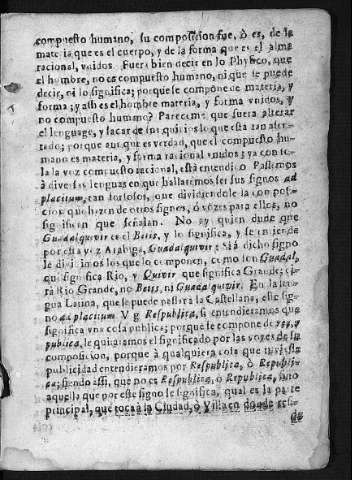 compuesto humano, su composicion fue, ò es, de la
materia que es el cuerpo, y de la forma que es el alma
racional, vnidos. Fuera bien decir en lo Physico, que
el hombre, no es compuesto humano, ni que se puede
decir, ni lo significa; porque se compone de materia, y
forma; y assi es el hombre materia, y forma vnidos, y
no compuesto humano? Pareceme que fuera alterar
el lenguage, y sacar de sus quicios lo que està tan
tado; porque aunque es verdad, que el compuesto hu-
mano es materia, y forma racional vnidos; ya con so-
la la voz compuesto racional, està entendido. Passemos
à diversas lenguas en que hallaremos ser sus signos ad
placitum, tan forçosos, que dividiendole la compo-
cion que hazen de otros signos, ò vozes para ellos, no
significan que señalan. No ay quien dude que
Guadalquivir es el Betis, y lo significa, y se entiende
por esta voz Arabiga, Guadalquivir: Si à dicho signo
le dividimos los que lo componen, como son Guadal,
que significa Rio, y Quivir que significa Grande;
rà Rio Grande, no Betis, ni Guadalquivir. En la len-
gua Latina, que se puede nuestra la Castellana, este sig-
no ad placitum V g Respublica, si entendieramos que
significa vna cosa publica; porque se compone de res, y
publica, le quitaramos el significado por las vozes de su
composicion, porque à qualquiera cosa que tuviesse
publicidad entendieramos por Respublica, ò Republi-
ca; siendo assi, que no es Respublica, ò Republica, sino
aquello que por este signo se significa, qual es la parte
principal, que toca à la Ciudad, ò Villa en donde està
de